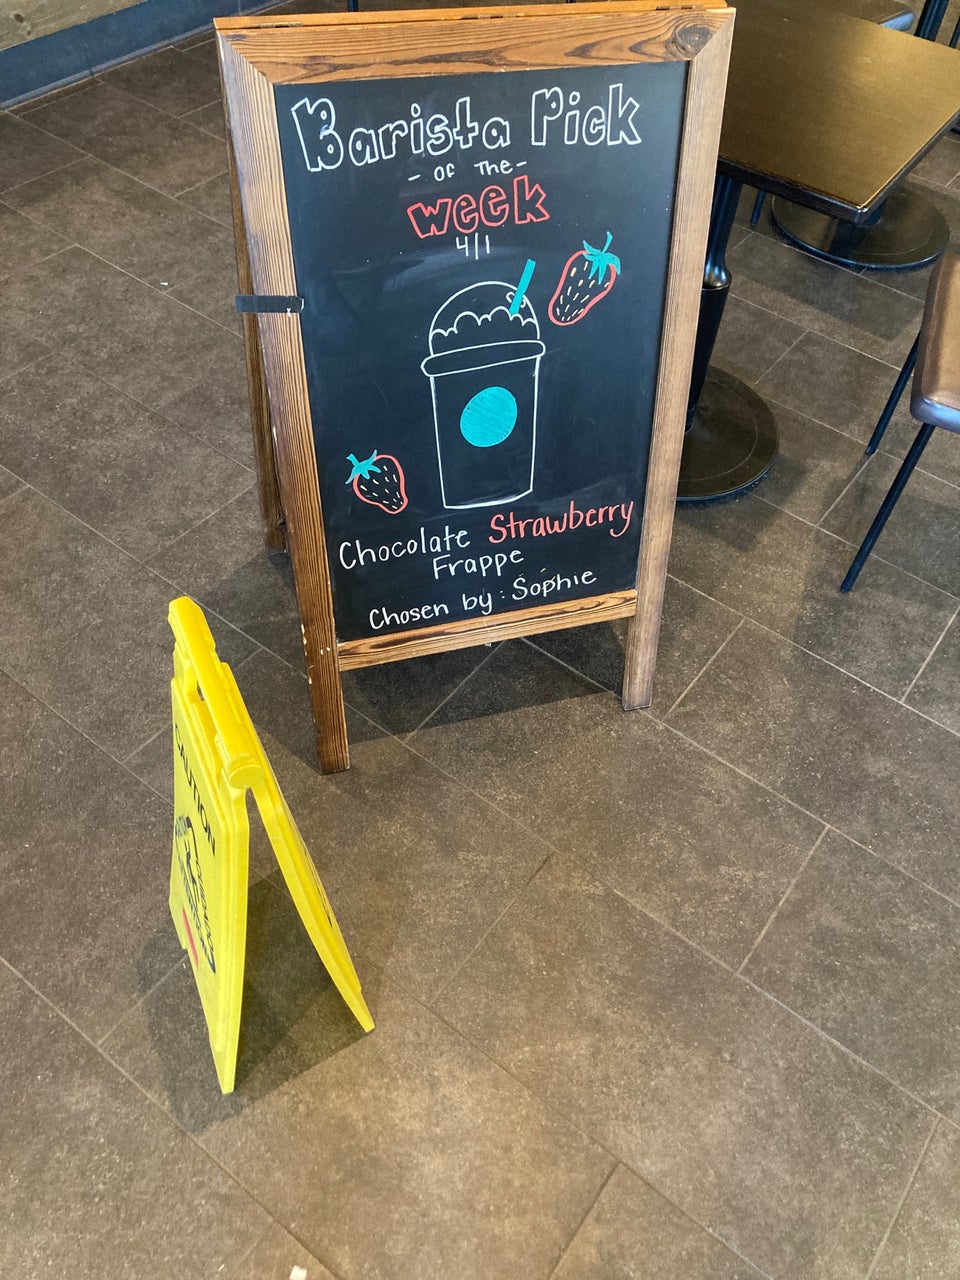 Barista Pick
- of The -
week
4/1
Chocolate Strawberry
Frappe
Chosen by: Sophie
CAUTION
CUIDADO